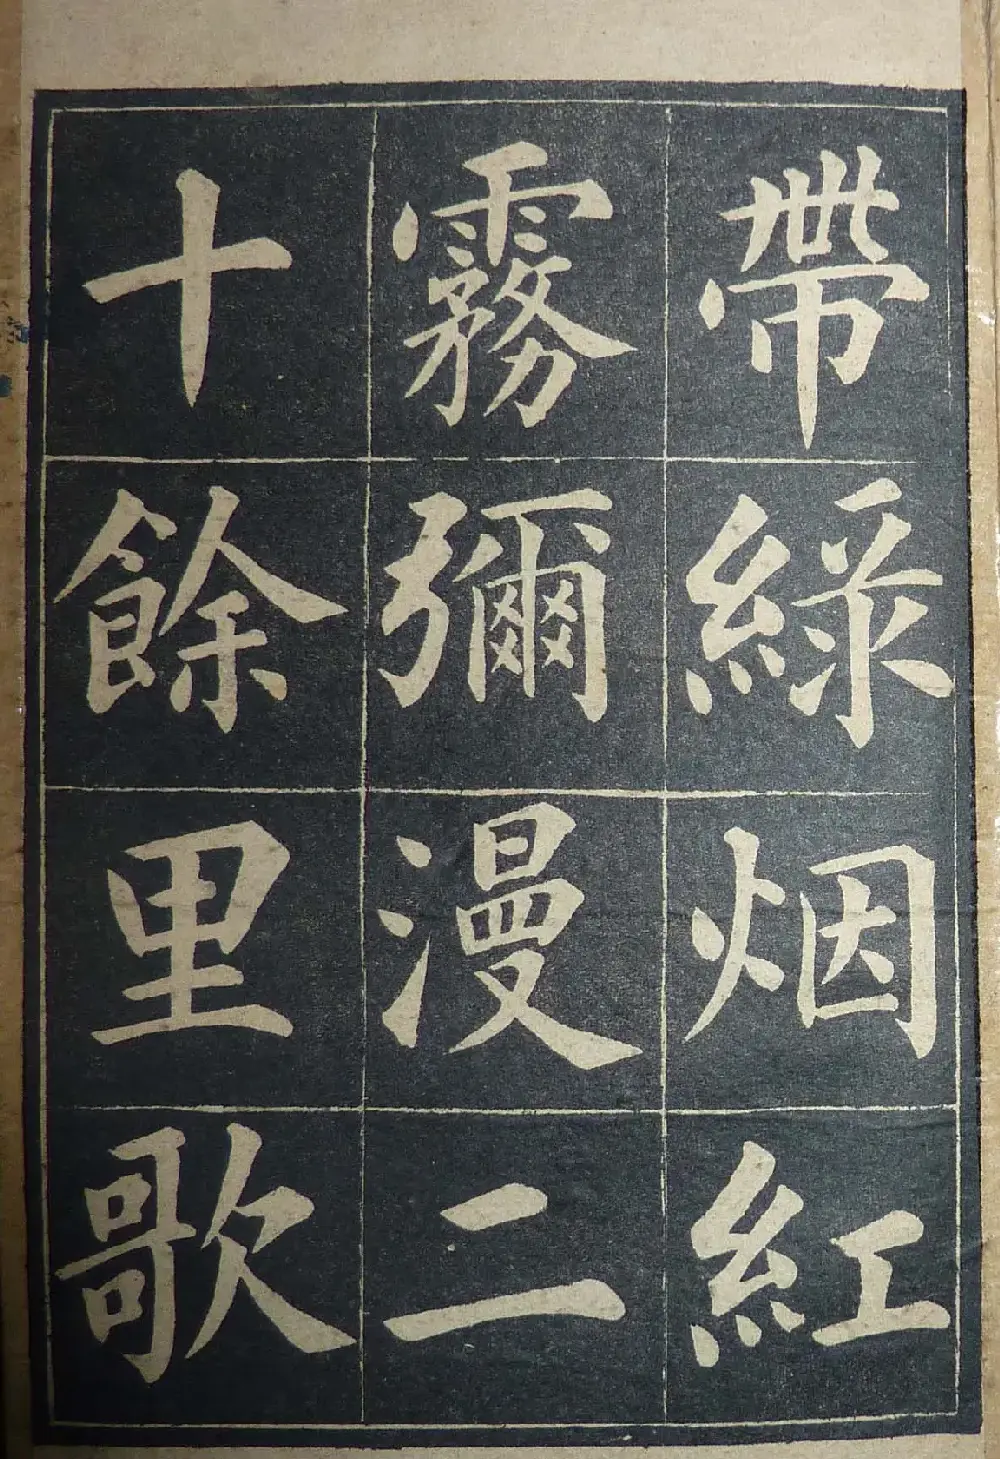 帶綠烟紅
霧彌漫二
十餘里歌